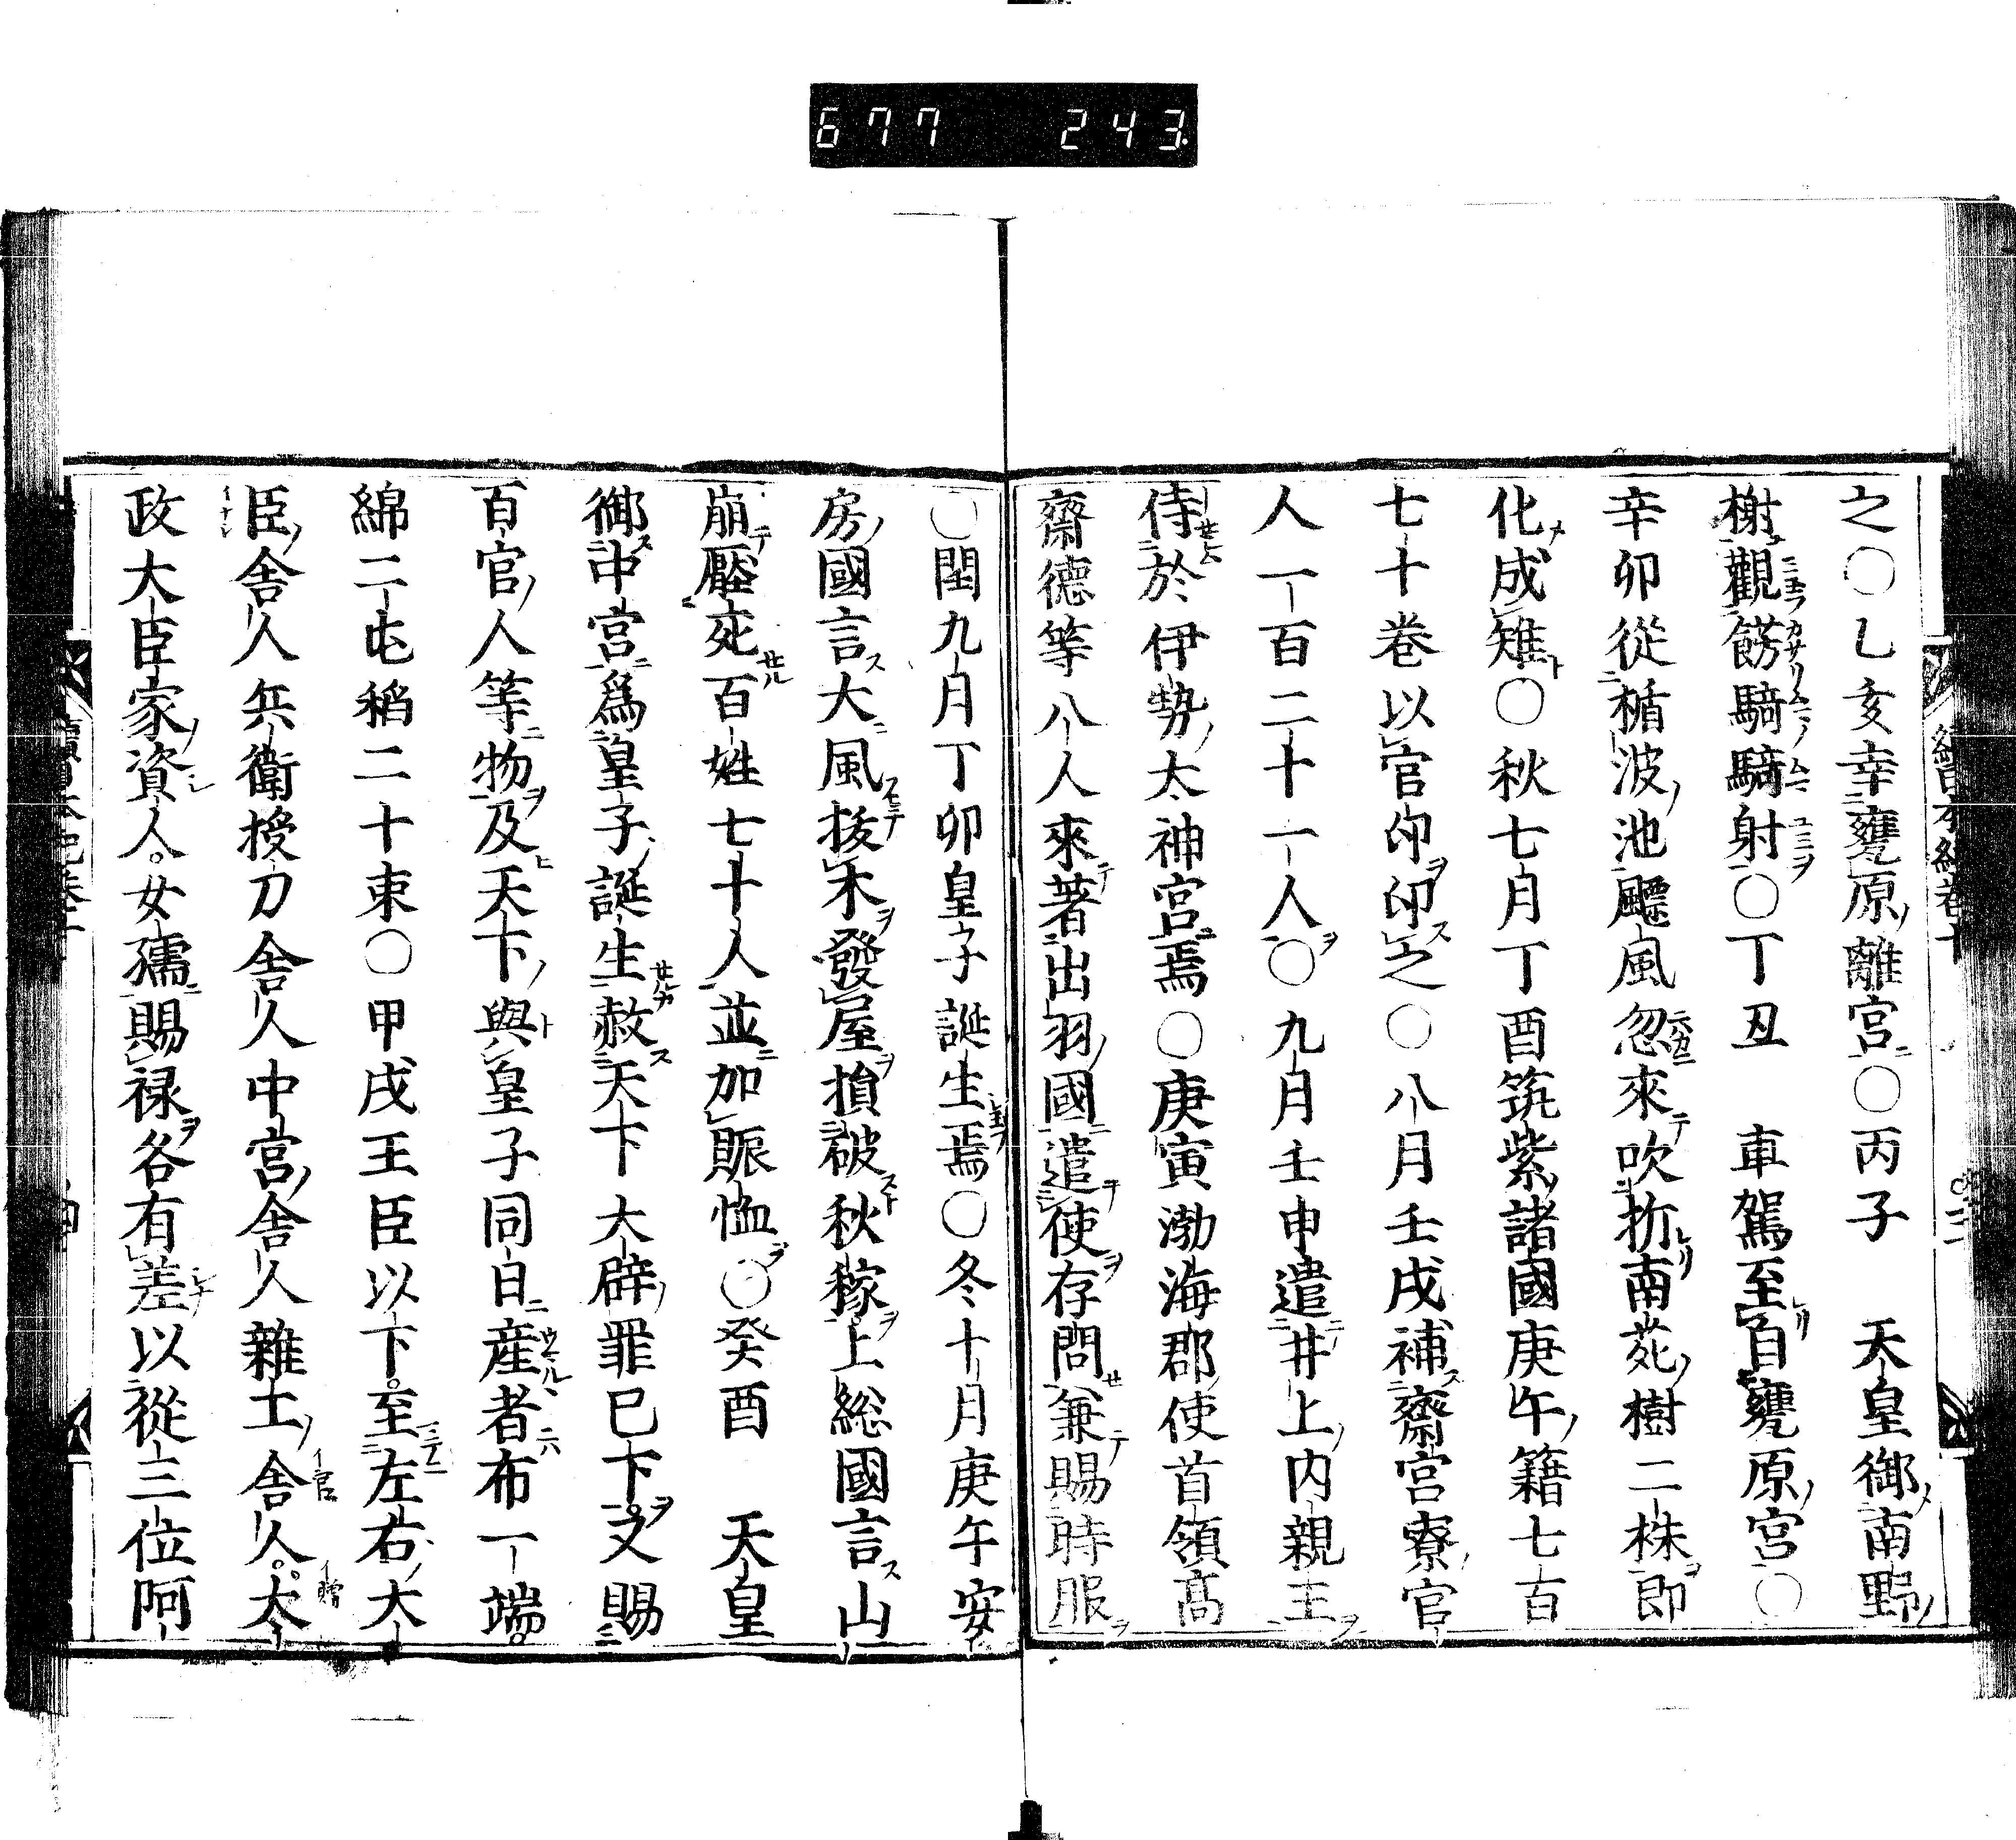 677 243
之〇乙亥幸甕原離宮〇丙子　天皇御南野
榭觀餝騎騎射〇丁丑　車駕至自甕原宮〇
辛卯從楯波池飈風忽來吹折南苑樹二株即
化成雉〇秋七月丁酉筑紫諸國庚午籍七百
七十卷以官印印之〇八月壬戌補齋宮寮官
人一百二十一人〇九月壬申遣井上内親王
侍於伊勢太神宮焉〇庚寅渤海郡使首領髙
齋德等八人來著出羽國遣使存問兼賜時服
〇閏九月丁卯皇子誕生焉〇冬十月庚午安
房國言大風拔木發屋損破秋稼上総國言山
崩壓死百姓七十人並加賑恤〇癸酉　天皇
御中宮爲皇子誕生赦天下大辟罪已下又賜
百官人等物及天下與皇子同日産者布一端
綿二屯稻二十束〇甲戌王臣以下至左右大
臣舎人兵衛授刀舎人中宮舎人雜工舎人太
政大臣家資人女孺賜禄各有差以從三位阿